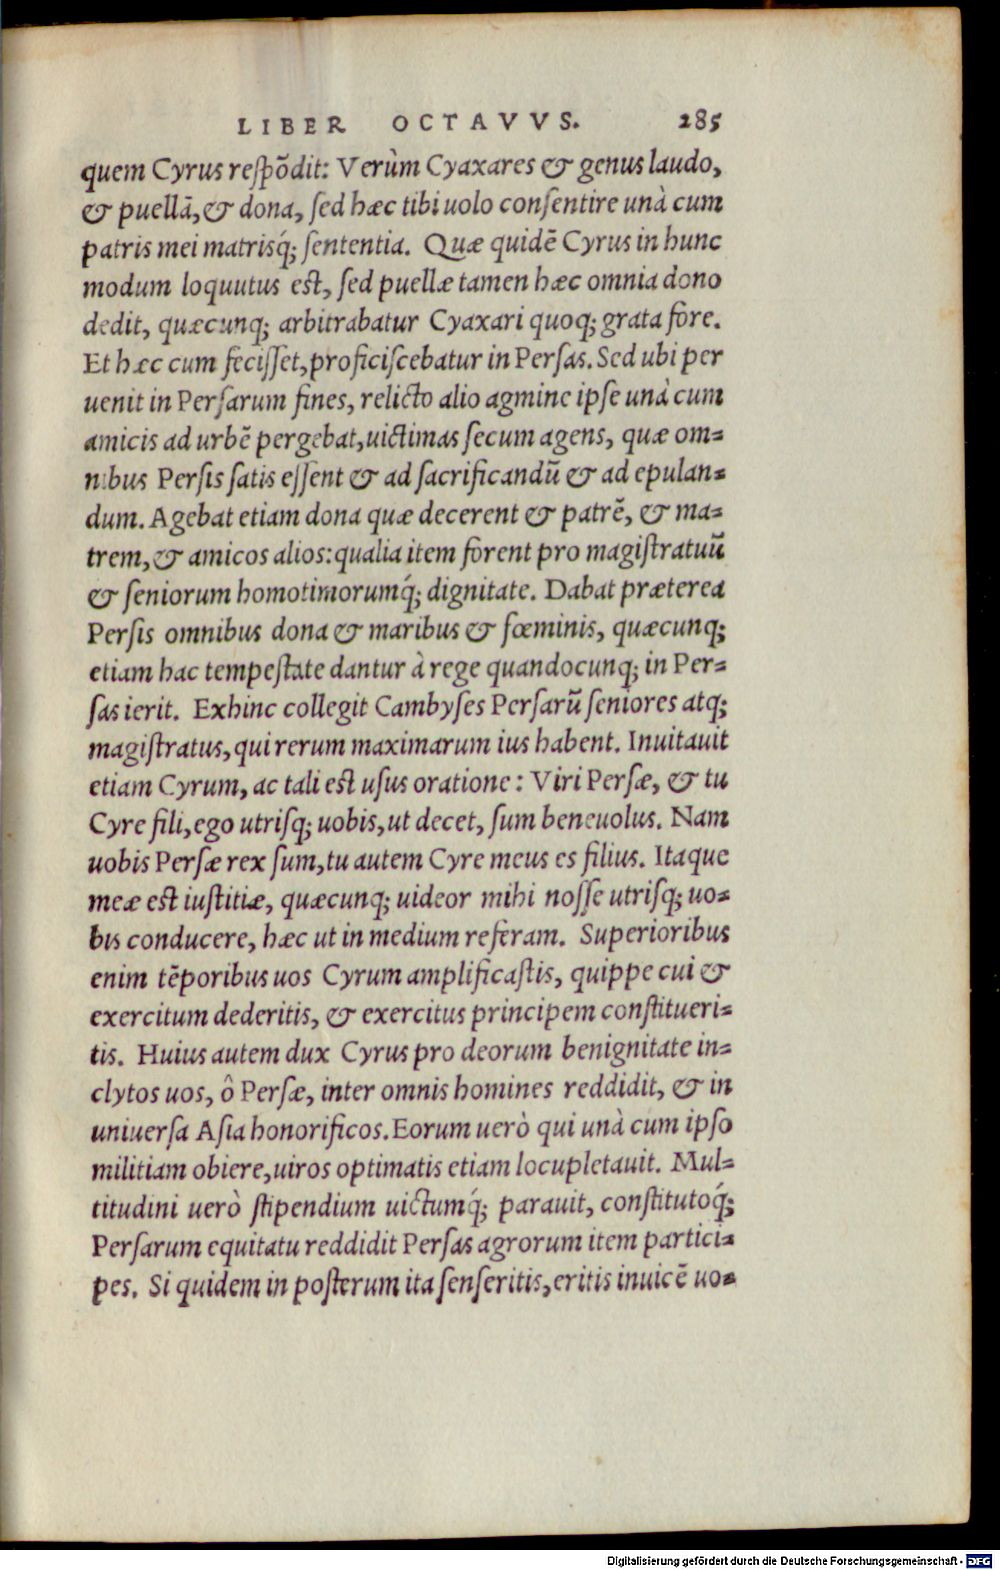 LIBER OCTAVVS. 285
quem Cyrus respõdit: Verùm Cyaxares & genus laudo,
& puellã, & dona, sed hæc tibi uolo consentire unà cum
patris mei matrisq́; sententia. Quæ quidẽ Cyrus in hunc
modum loquutus est, sed puellæ tamen hæc omnia dono
dedit, quæcunq; arbitrabatur Cyaxari quoq; grata fore.
Et hæc cum fecisset, proficiscebatur in Persas. Sed ubi per
uenit in Persarum fines, relicto alio agmine ipse unà cum
amicis ad urbẽ pergebat, uictimas secum agens, quæ om=
nibus Persis satis essent & ad sacrificandũ & ad epulan=
dum. Agebat etiam dona quæ decerent & patrẽ, & ma=
trem, & amicos alios: qualia item forent pro magistratuũ
& seniorum homotimorumq́; dignitate. Dabat præterea
Persis omnibus dona & maribus & fœminis, quæcunq;
etiam hac tempestate dantur à rege quandocunq; in Per=
sas ierit. Exhinc collegit Cambyses Persarũ seniores atq;
magistratus, qui rerum maximarum ius habent. Inuitauit
etiam Cyrum, ac tali est usus oratione: Viri Persæ, & tu
Cyre fili, ego utrisq; uobis, ut decet, sum beneuolus. Nam
uobis Persæ rex sum, tu autem Cyre meus es filius. Itaque
meæ est iustitiæ, quæcunq; uideor mihi nosse utrisq; uo=
bis conducere, hæc ut in medium referam. Superioribus
enim tẽporibus uos Cyrum amplificastis, quippe cui &
exercitum dederitis, & exercitus principem constitueri=
tis. Huius autem dux Cyrus pro deorum benignitate in=
clytos uos, ô Persæ, inter omnis homines reddidit, & in
uniuersa Asia honorificos. Eorum uerò qui unà cum ipso
militiam obiere, uiros optimatis etiam locupletauit. Mul=
titudini uerò stipendium uictumq́; parauit, constitutoq́;
Persarum equitatu reddidit Persas agrorum item partici=
pes. Si quidem in posterum ita senseritis, eritis inuicẽ uo=
Digitalisierung gefördert durch die Deutsche Forschungsgemeinschaft - DFG